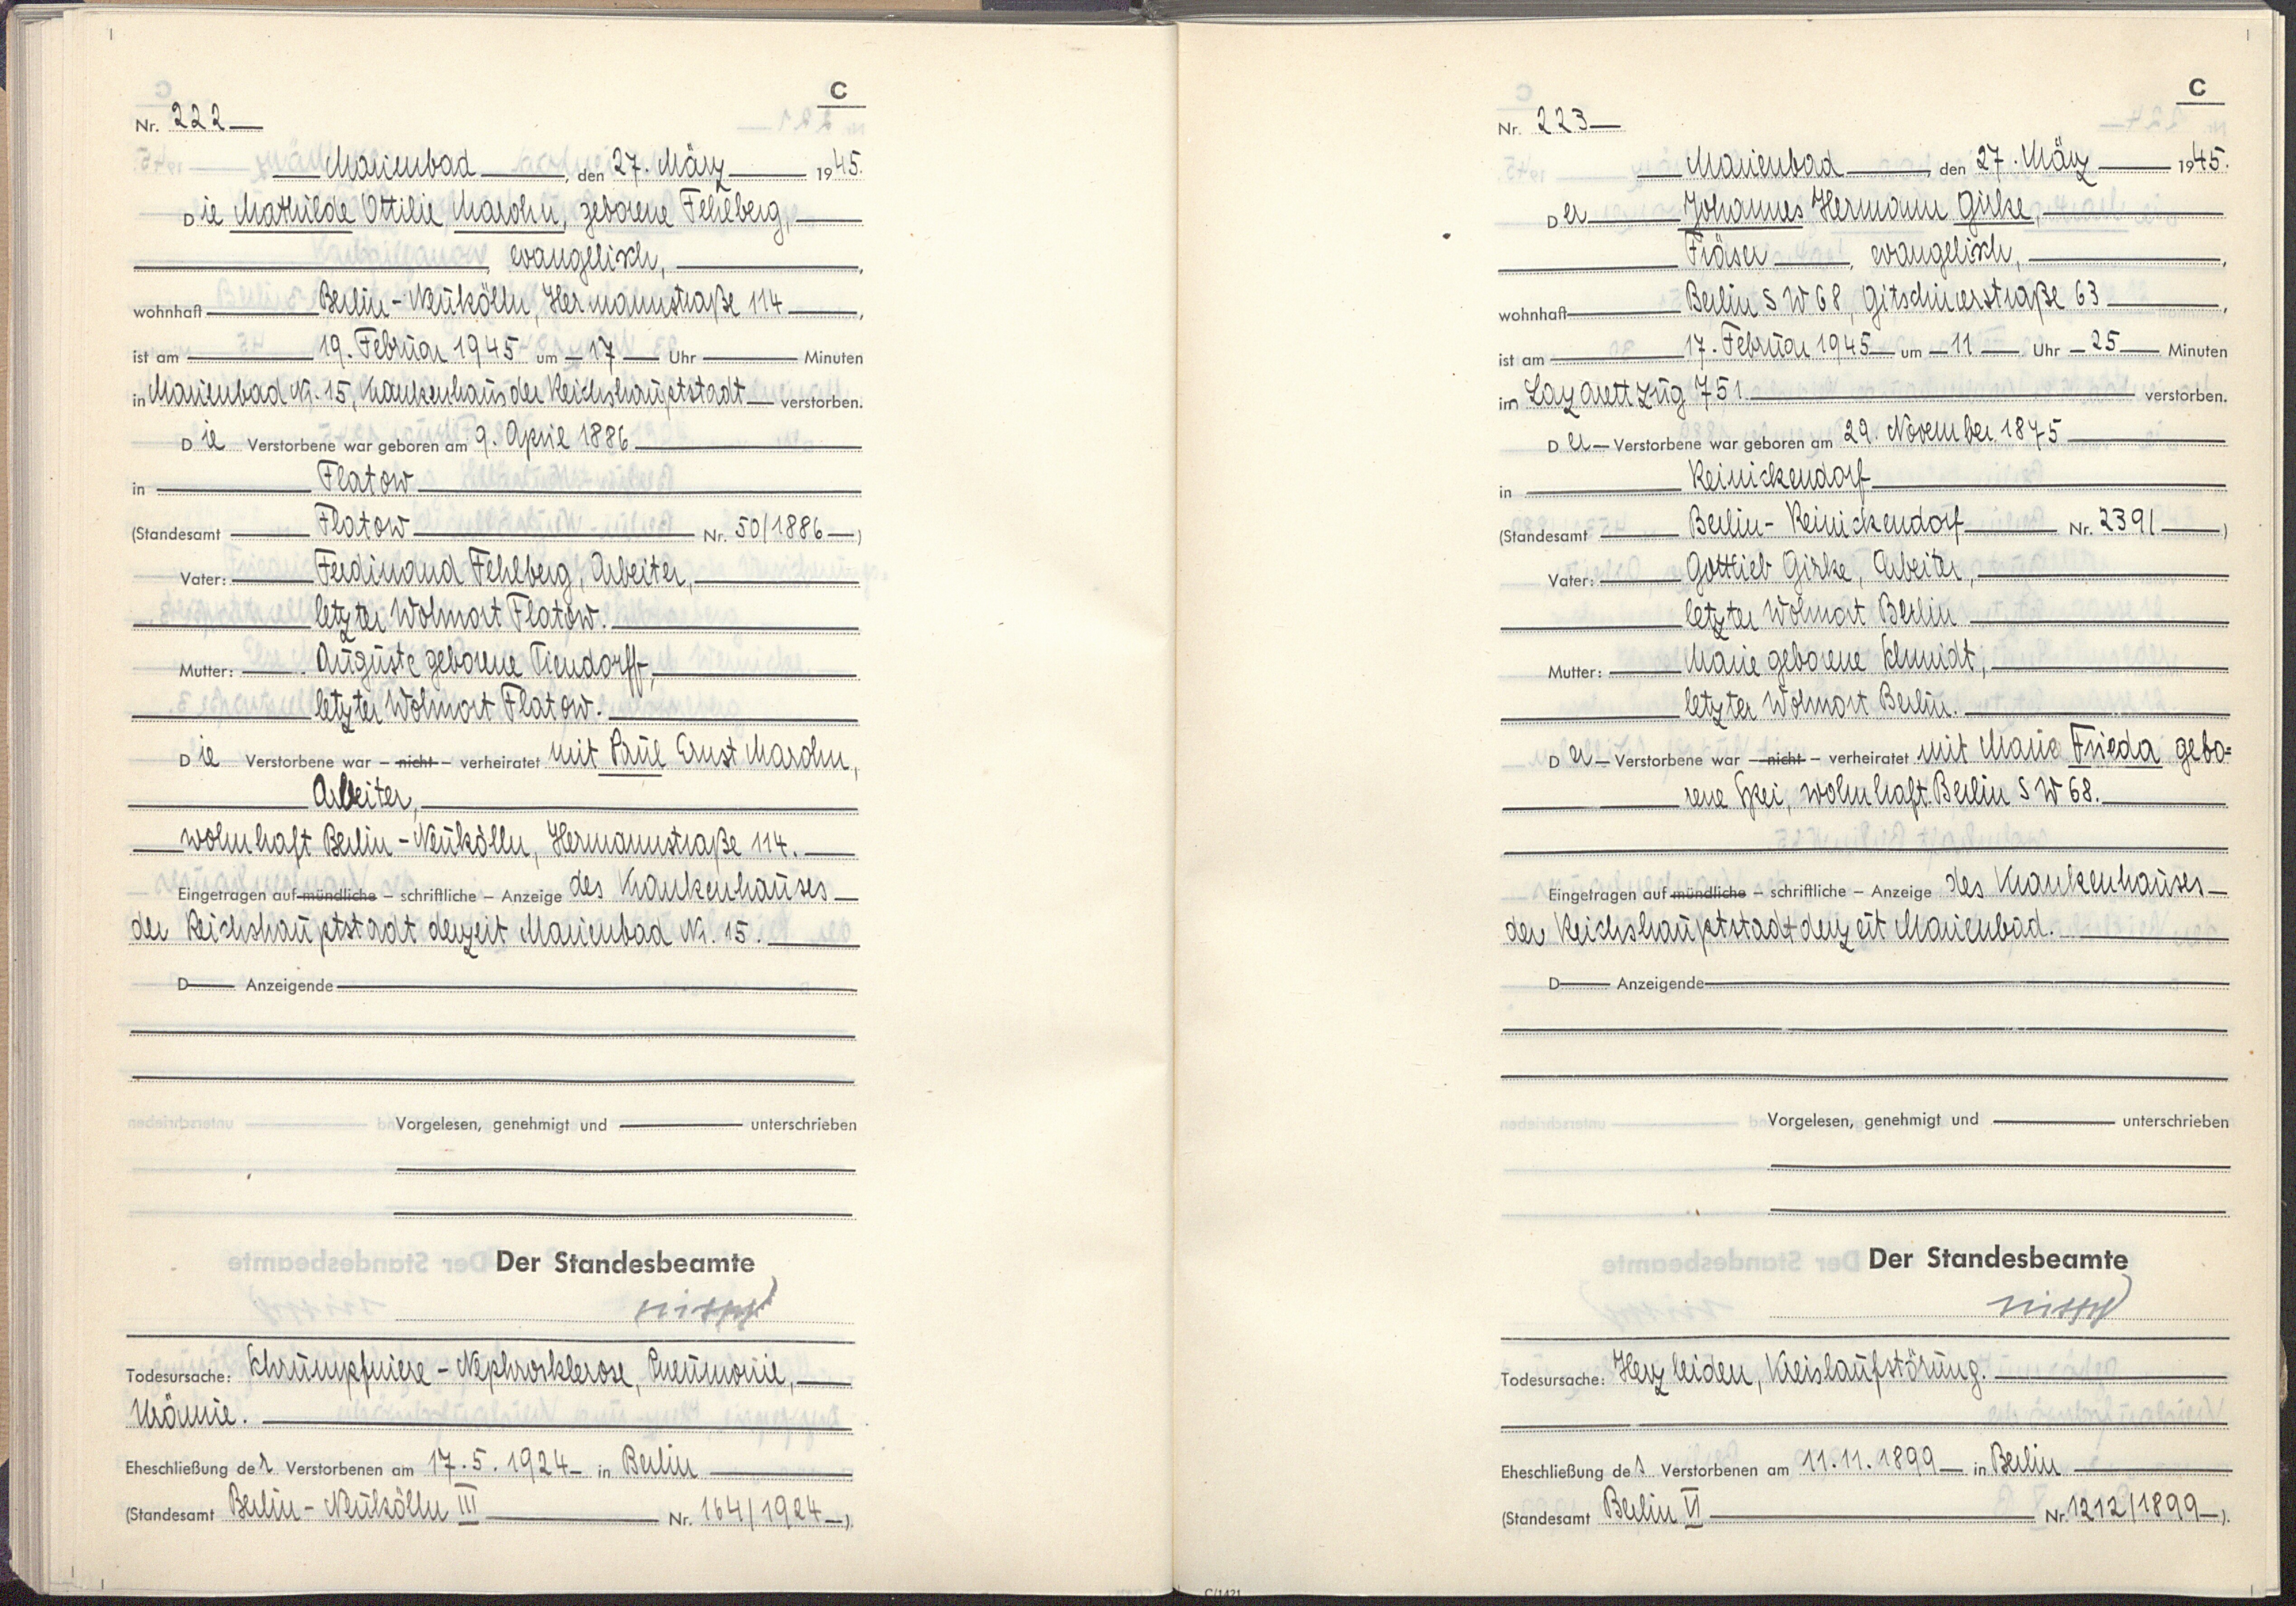 C
Nr. 222
Marienbad, den 27. März 1945.
Die Mathilde Ottilie Marohn, geborene Fehlberg,
evangelisch,
wohnhaft Berlin-Neukölln, Hermannstraße 114,
ist am 19. Februar 1945 um 17 Uhr Minuten
in Marienbad Nr. 15, Krankenhaus der Reichshauptstadt verstorben.
Die Verstorbene war geboren am 9. April 1886
in Flatow
(Standesamt Flatow Nr. 50/1886)
Vater: Ferdinand Fehlberg, Arbeiter,
letzter Wohnort Flatow.
Mutter: Auguste geborene Tiendorff,
letzter Wohnort Flatow.
Die Verstorbene war – nicht – verheiratet mit Paul Ernst Marohn,
Arbeiter,
wohnhaft Berlin-Neukölln, Hermannstraße 114.
Eingetragen auf mündliche – schriftliche – Anzeige des Krankenhauses
der Reichshauptstadt derzeit Marienbad Nr. 15.
D Anzeigende
Vorgelesen, genehmigt und unterschrieben
Der Standesbeamte
Todesursache: Schrumpfniere-Nephrosklerose, Pneumonie,
Urämie.
Eheschließung der Verstorbenen am 17.5.1924 in Berlin
(Standesamt Berlin-Neukölln III Nr. 164/1924).
C
Nr. 223
Marienbad, den 27. März 1945.
Der Johannes Hermann Girke,
Fräser, evangelisch,
wohnhaft Berlin SW 68, Gitschinerstraße 63,
ist am 17. Februar 1945 um 11 Uhr 25 Minuten
im Lazarettzug 751. verstorben.
Der Verstorbene war geboren am 29. November 1875
in Reinickendorf
(Standesamt Berlin-Reinickendorf Nr. 2391)
Vater: Gottlieb Girke, Arbeiter,
letzter Wohnort Berlin
Mutter: Marie geborene Schmidt,
letzter Wohnort Berlin.
Der Verstorbene war – nicht – verheiratet mit Marie Frieda gebo=
rene wohnhaft Berlin SW 68.
Eingetragen auf mündliche – schriftliche – Anzeige des Krankenhauses
der Reichshauptstadt derzeit Marienbad.
D Anzeigende
Vorgelesen, genehmigt und unterschrieben
Der Standesbeamte
Todesursache: Herzleiden, Kreislaufstörung.
Eheschließung des Verstorbenen am 11.11.1899 in Berlin
(Standesamt Berlin VI Nr. 1212/1899).
C/1421